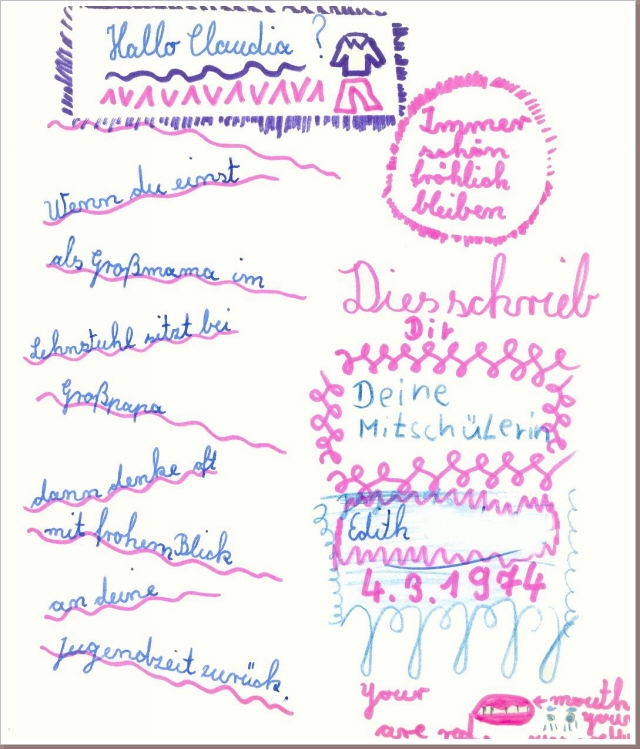 Hallo Claudia ?
Wenn du einst
als Großmama im
Lehnstuhl sitzt bei
Großpapa
dann denke oft
mit frohem Blick
an deine
Jugendzeit zurück.
Immer
schön
fröhlich
bleiben
Dies schrieb
Dir
Deine
Mitschülerin
Edith
4.3.1974
your
mouth
your
are